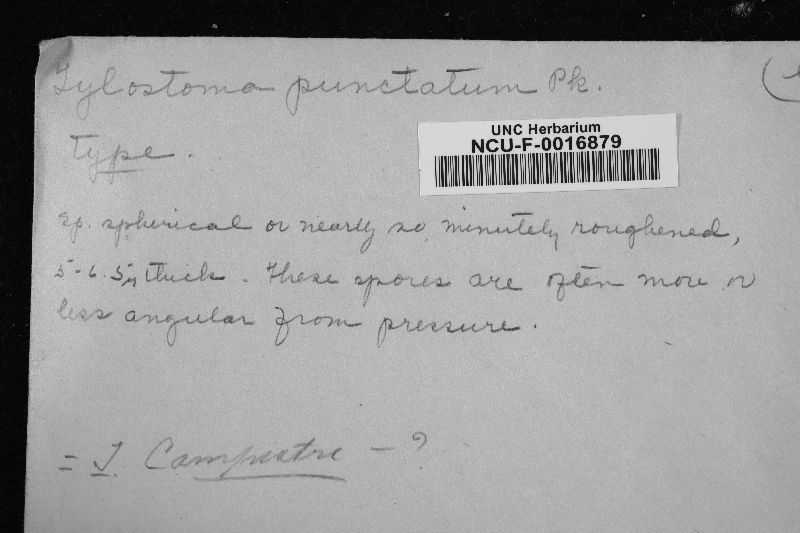 Tylostoma punctatum Pk. (
type.
UNC Herbarium
NCU-F-0016879
Sp. spherical or nearly so, minutely roughened,
5-6.5µ thick. These spores are often more or
less angular from pressure.
= T. Campestre - ?